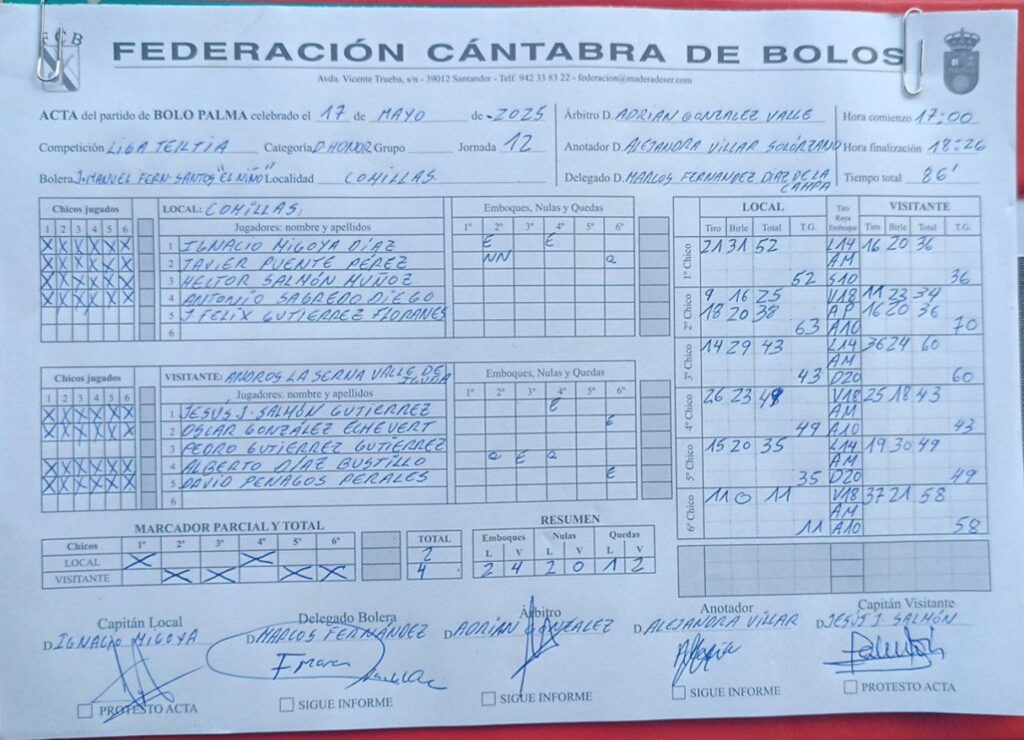 FCB
FEDERACIÓN CÁNTABRA DE BOLOS
Avda. Vicente Trueba, s/n - 39012 Santander - Telf. 942 33 83 22 - federacion@maderadeser.com
ACTA del partido de BOLO PALMA celebrado el 17 de MAYO de 2025
Competición LIGA TELTIA Categoría D. HONOR Grupo Jornada 12
Bolera J. MANUEL FERN-SANTOS "EL NIÑO" Localidad COMILLAS.
Árbitro D. ADRIAN GONZALEZ VALLE
Anotador D. ALEJANDRA VILLAR SOLÓRZANO
Delegado D. MARCOS FERNANDEZ DIAZ DE LA CAMPA
Hora comienzo 17:00
Hora finalización 18:26
Tiempo total 86'
Chicos jugados LOCAL: COMILLAS, Emboques, Nulas y Quedas
1 2 3 4 5 6 Jugadores: nombre y apellidos 1º 2º 3º 4º 5º 6º
X X X X X X 1 IGNACIO MIGOYA DÍAZ E E
X X X X X X 2 JAVIER PUENTE PÉREZ NN Q
X X X X X X 3 HECTOR SALMÓN MUÑOZ
X X X X X X 4 ANTONIO SAGREDO DIEGO
5 J. FELIX GUTIERREZ FLORANES
6
Chicos jugados VISITANTE: ANDROS LA SERNA VALLE DE IGUÑA Emboques, Nulas y Quedas
1 2 3 4 5 6 Jugadores: nombre y apellidos 1º 2º 3º 4º 5º 6º
X X X X X X 1 JESÚS J. SALMÓN GUTIERREZ E
X X X X X X 2 OSCAR GONZÁLEZ ECHEVERT E
3 PEDRO GUTIERREZ GUTIERREZ
X X X X X X 4 ALBERTO DÍAZ BUSTILLO Q E Q
X X X X X X 5 DAVID PENAGOS PERALES E
6
LOCAL Tiro Raya Emboque VISITANTE
Tiro Birle Total T.G. Tiro Birle Total T.G.
1º Chico 21 31 52 L14 16 20 36
AM
52 S10 36
2º Chico 9 16 25 V18 11 23 34
18 20 38 AP 16 20 36
63 A10 70
3º Chico 14 29 43 L14 36 24 60
AM
43 D20 60
4º Chico 26 23 49 V18 25 18 43
AM
49 A10 43
5º Chico 15 20 35 L14 19 30 49
AM
35 D20 49
6º Chico 11 0 11 V18 37 21 58
AM
11 A10 58
MARCADOR PARCIAL Y TOTAL
Chicos 1º 2º 3º 4º 5º 6º TOTAL
LOCAL X X 2
VISITANTE X X X X 4
RESUMEN
Emboques Nulas Quedas
L V L V L V
2 4 2 0 1 2
Capitán Local
D. IGNACIO MIGOYA
PROTESTO ACTA
Delegado Bolera
D. MARCOS FERNANDEZ
SIGUE INFORME
Árbitro
D. ADRIAN GONZALEZ
SIGUE INFORME
Anotador
D. ALEJANDRA VILLAR
SIGUE INFORME
Capitán Visitante
D. JESÚS J. SALMÓN
PROTESTO ACTA